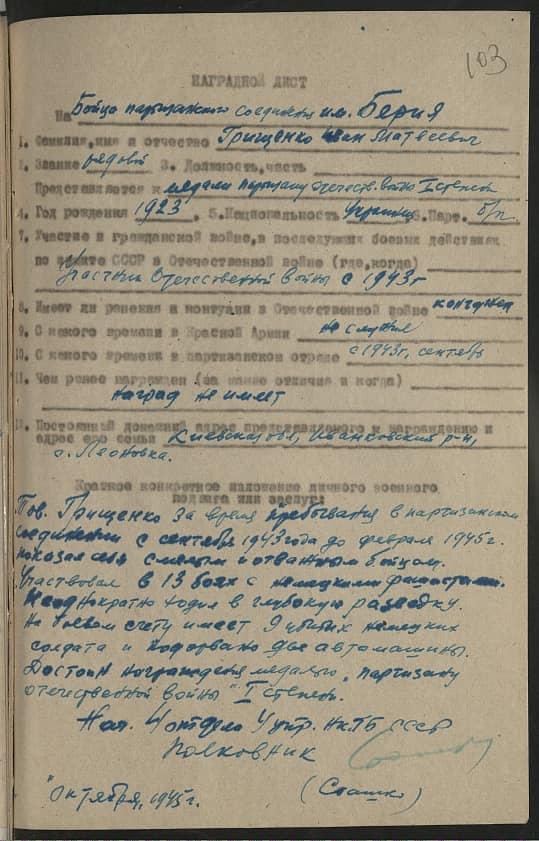 103
НАГРАДНОЙ ЛИСТ
На Бойца партизанского соединения им. Берия
1. Фамилия, имя и отчество Грищенко Иван Матвеевич
2. Звание рядовой 3. Должность, часть
Представляется к медали партизану отечеств. войны I степени
4. Год рождения 1923. 5. Национальность украинец 6. Парт. б/п
7. Участие в гражданской войне, в последующих боевых действиях
по защите СССР в Отечественной войне (где, когда)
Участник Отечественной войны с 1943г
8. Имеет ли ранения и контузии в Отечественной войне контужен
9. С какого времени в Красной Армии не служил
10. С какого времени в партизанском отряде с 1943г, сентябрь
11. Чем ранее награжден (за какие отличия и когда)
наград не имеет
12. Постоянный домашний адрес представляемого к награждению и
адрес его семьи Киевская обл, Иванковский р-н,
с. Леоновка.
Краткое конкретное изложение личного военного
подвига или заслуг:
Тов. Грищенко за время пребывания в партизанском
соединении с сентября 1943 года до февраля 1945г.
показал себя смелым и отважным бойцом.
Участвовал в 13 боях с немецкими фашистами.
Неоднократно ходил в глубокую разведку.
На боевом счету имеет 9 убитых немецких
солдата и подорвано две автомашины.
Достоин награждения медалью „партизану
отечественной войны" I степени.
Нач. 4 отдела 4 упр. НКГБ СССР
Полковник
(Сташко)
" октября, 1945г.